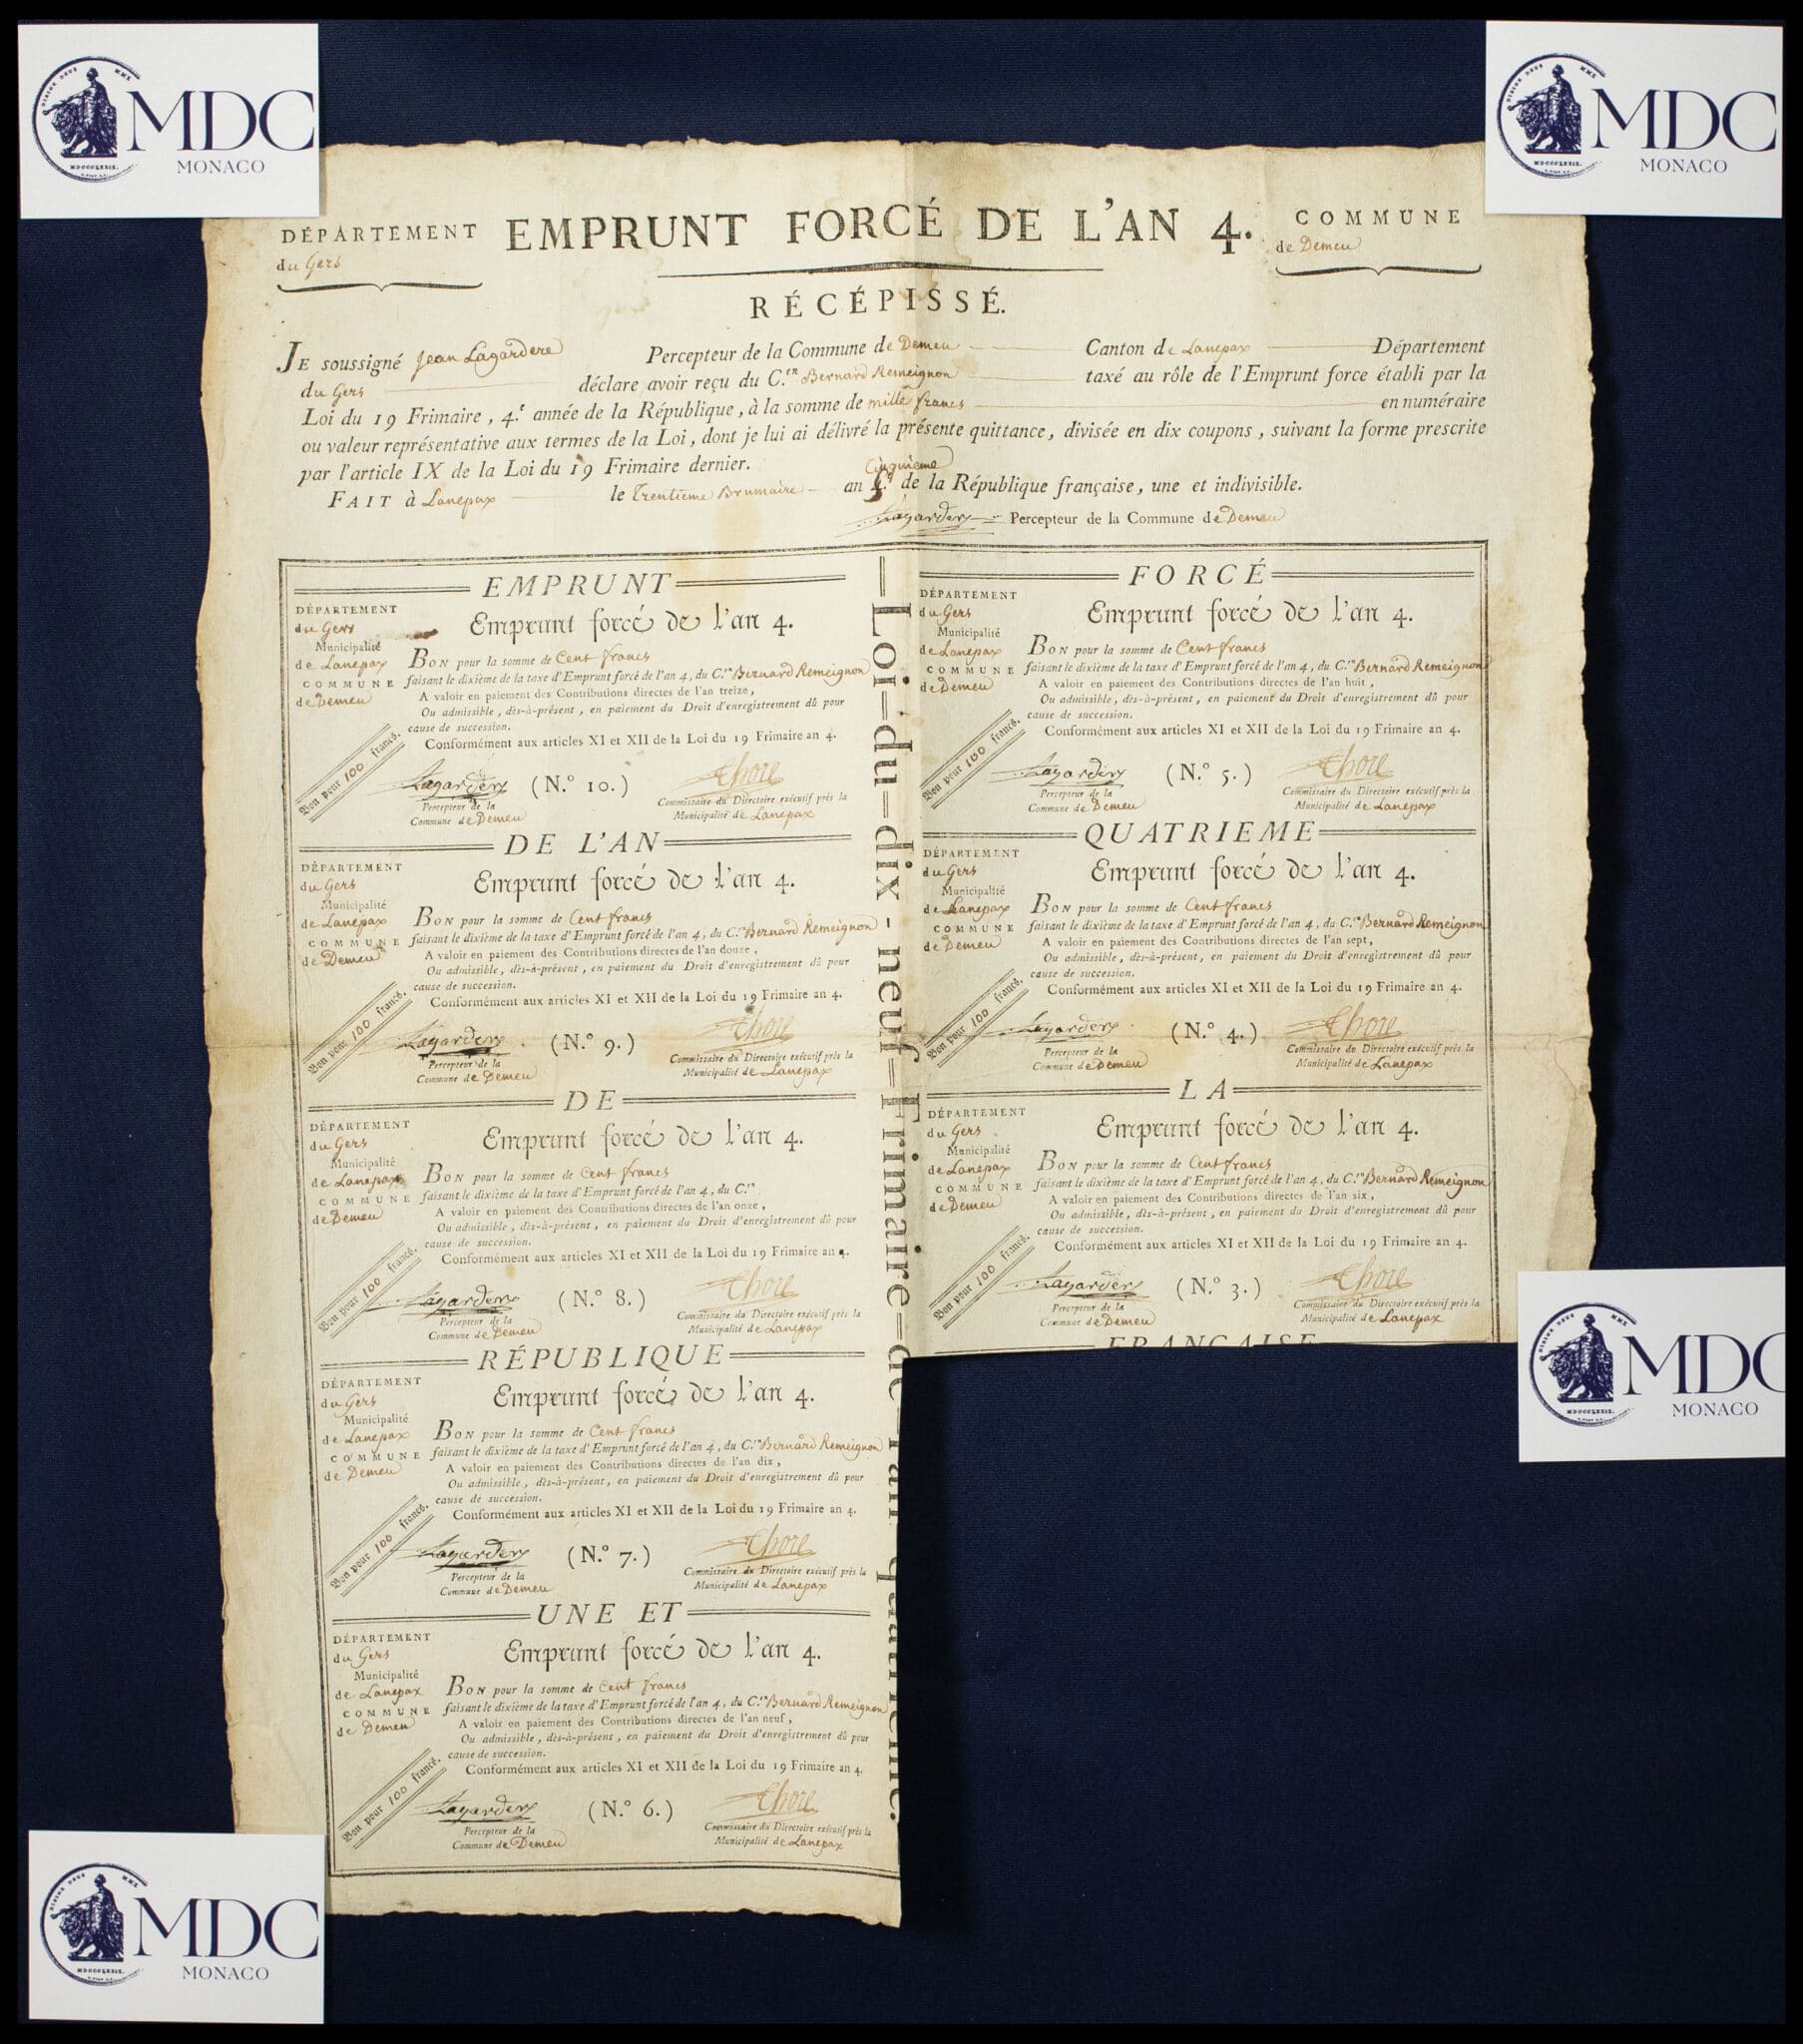 MDC
MONACO
MDC
MONACO
DÉPARTEMENT
du Gers
EMPRUNT FORCÉ DE L'AN 4.
COMMUNE
de Demeu
RÉCÉPISSÉ.
JE soussigné Jean Lagardere Percepteur de la Commune de Demeu Canton de Lanepax Département
du Gers déclare avoir reçu du C.en Bernard Remeignon taxé au rôle de l'Emprunt force établi par la
Loi du 19 Frimaire, 4.e année de la République, à la somme de mille francs en numéraire
ou valeur représentative aux termes de la Loi, dont je lui ai délivré la présente quittance, divisée en dix coupons, suivant la forme prescrite
par l'article IX de la Loi du 19 Frimaire dernier.
cinquieme
FAIT à Lanepax le Trentieme Brumaire an de la République française, une et indivisible.
Lagardere Percepteur de la Commune de Demeu
EMPRUNT
DÉPARTEMENT
du Gers
Municipalité
de Lanepax
COMMUNE
de Demeu
Emprunt forcé de l'an 4.
BON pour la somme de Cent francs
faisant le dixième de la taxe d'Emprunt forcé de l'an 4, du C.en Bernard Remeignon
A valoir en paiement des Contributions directes de l'an treize,
Ou admissible, dès-à-présent, en paiement du Droit d'enregistrement dû pour
cause de succession.
Conformément aux articles XI et XII de la Loi du 19 Frimaire an 4.
Bon pour 100 francs.
Lagardere (N.o 10.) Thore
Percepteur de la
Commune de Demeu
Commissaire du Directoire exécutif près la
Municipalité de Lanepax
DE L'AN
DÉPARTEMENT
du Gers
Municipalité
de Lanepax
COMMUNE
de Demeu
Emprunt forcé de l'an 4.
BON pour la somme de Cent francs
faisant le dixième de la taxe d'Emprunt forcé de l'an 4, du C.en Bernard Remeignon
A valoir en paiement des Contributions directes de l'an douze,
Ou admissible, dès-à-présent, en paiement du Droit d'enregistrement dû pour
cause de succession.
Conformément aux articles XI et XII de la Loi du 19 Frimaire an 4.
Bon pour 100 francs.
Lagardere (N.o 9.) Thore
Percepteur de la
Commune de Demeu
Commissaire du Directoire exécutif près la
Municipalité de Lanepax
DE
DÉPARTEMENT
du Gers
Municipalité
de Lanepax
COMMUNE
de Demeu
Emprunt forcé de l'an 4.
BON pour la somme de Cent francs
faisant le dixième de la taxe d'Emprunt forcé de l'an 4, du C.en
A valoir en paiement des Contributions directes de l'an onze,
Ou admissible, dès-à-présent, en paiement du Droit d'enregistrement dû pour
cause de succession.
Conformément aux articles XI et XII de la Loi du 19 Frimaire an 4.
Bon pour 100 francs.
Lagardere (N.o 8.) Thore
Percepteur de la
Commune de Demeu
Commissaire du Directoire exécutif près la
Municipalité de Lanepax
RÉPUBLIQUE
DÉPARTEMENT
du Gers
Municipalité
de Lanepax
COMMUNE
de Demeu
Emprunt forcé de l'an 4.
BON pour la somme de Cent francs
faisant le dixième de la taxe d'Emprunt forcé de l'an 4, du C.en Bernard Remeignon
A valoir en paiement des Contributions directes de l'an dix,
Ou admissible, dès-à-présent, en paiement du Droit d'enregistrement dû pour
cause de succession.
Conformément aux articles XI et XII de la Loi du 19 Frimaire an 4.
Bon pour 100 francs.
Lagardere (N.o 7.) Thore
Percepteur de la
Commune de Demeu
Commissaire du Directoire exécutif près la
Municipalité de Lanepax
UNE ET
DÉPARTEMENT
du Gers
Municipalité
de Lanepax
COMMUNE
de Demeu
Emprunt forcé de l'an 4.
BON pour la somme de Cent francs
faisant le dixième de la taxe d'Emprunt forcé de l'an 4, du C.en Bernard Remeignon
A valoir en paiement des Contributions directes de l'an neuf,
Ou admissible, dès-à-présent, en paiement du Droit d'enregistrement dû pour
cause de succession.
Conformément aux articles XI et XII de la Loi du 19 Frimaire an 4.
Bon pour 100 francs.
Lagardere (N.o 6.) Thore
Percepteur de la
Commune de Demeu
Commissaire du Directoire exécutif près la
Municipalité de Lanepax
Loi=du=dix-neuf=Frimaire=de l'an quatrieme.
FORCÉ
DÉPARTEMENT
du Gers
Municipalité
de Lanepax
COMMUNE
de Demeu
Emprunt forcé de l'an 4.
BON pour la somme de Cent francs
faisant le dixième de la taxe d'Emprunt forcé de l'an 4, du C.en Bernard Remeignon
A valoir en paiement des Contributions directes de l'an huit,
Ou admissible, dès-à-présent, en paiement du Droit d'enregistrement dû pour
cause de succession.
Conformément aux articles XI et XII de la Loi du 19 Frimaire an 4.
Bon pour 100 francs.
Lagardere (N.o 5.) Thore
Percepteur de la
Commune de Demeu
Commissaire du Directoire exécutif près la
Municipalité de Lanepax
QUATRIEME
DÉPARTEMENT
du Gers
Municipalité
de Lanepax
COMMUNE
de Demeu
Emprunt forcé de l'an 4.
BON pour la somme de Cent francs
faisant le dixième de la taxe d'Emprunt forcé de l'an 4, du C.en Bernard Remeignon
A valoir en paiement des Contributions directes de l'an sept,
Ou admissible, dès-à-présent, en paiement du Droit d'enregistrement dû pour
cause de succession.
Conformément aux articles XI et XII de la Loi du 19 Frimaire an 4.
Bon pour 100 francs.
Lagardere (N.o 4.) Thore
Percepteur de la
Commune de Demeu
Commissaire du Directoire exécutif près la
Municipalité de Lanepax
LA
DÉPARTEMENT
du Gers
Municipalité
de Lanepax
COMMUNE
de Demeu
Emprunt forcé de l'an 4.
BON pour la somme de Cent francs
faisant le dixième de la taxe d'Emprunt forcé de l'an 4, du C.en Bernard Remeignon
A valoir en paiement des Contributions directes de l'an six,
Ou admissible, dès-à-présent, en paiement du Droit d'enregistrement dû pour
cause de succession.
Conformément aux articles XI et XII de la Loi du 19 Frimaire an 4.
Bon pour 100 francs.
Lagardere (N.o 3.) Thore
Percepteur de la
Commune de Demeu
Commissaire du Directoire exécutif près la
Municipalité de Lanepax
FRANÇAISE
MDC
MONACO
MDC
MONACO